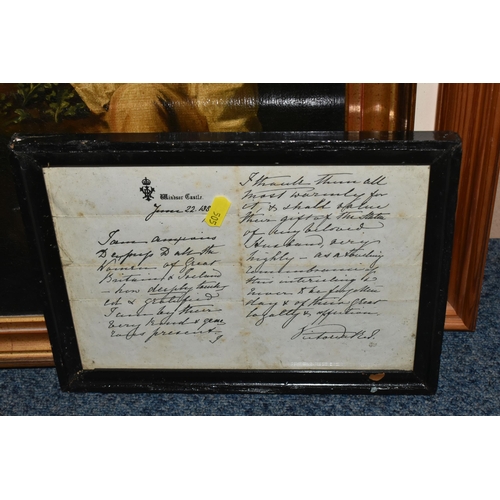 Windsor Castle.
June 22. 188
505
I am anxious
to express to all the
Women of Great
Britain & Ireland
how deeply touch-
ed & gratified
I am by their
very kind & gene-
rous present,
I thank them all
most warmly for
it, & shall value
their gift of the statue
of my beloved
Husband, very
highly – as a touching
remembrance of
this interesting &
never to be forgotten
day & of their great
loyalty & affection
Victoria R.I.